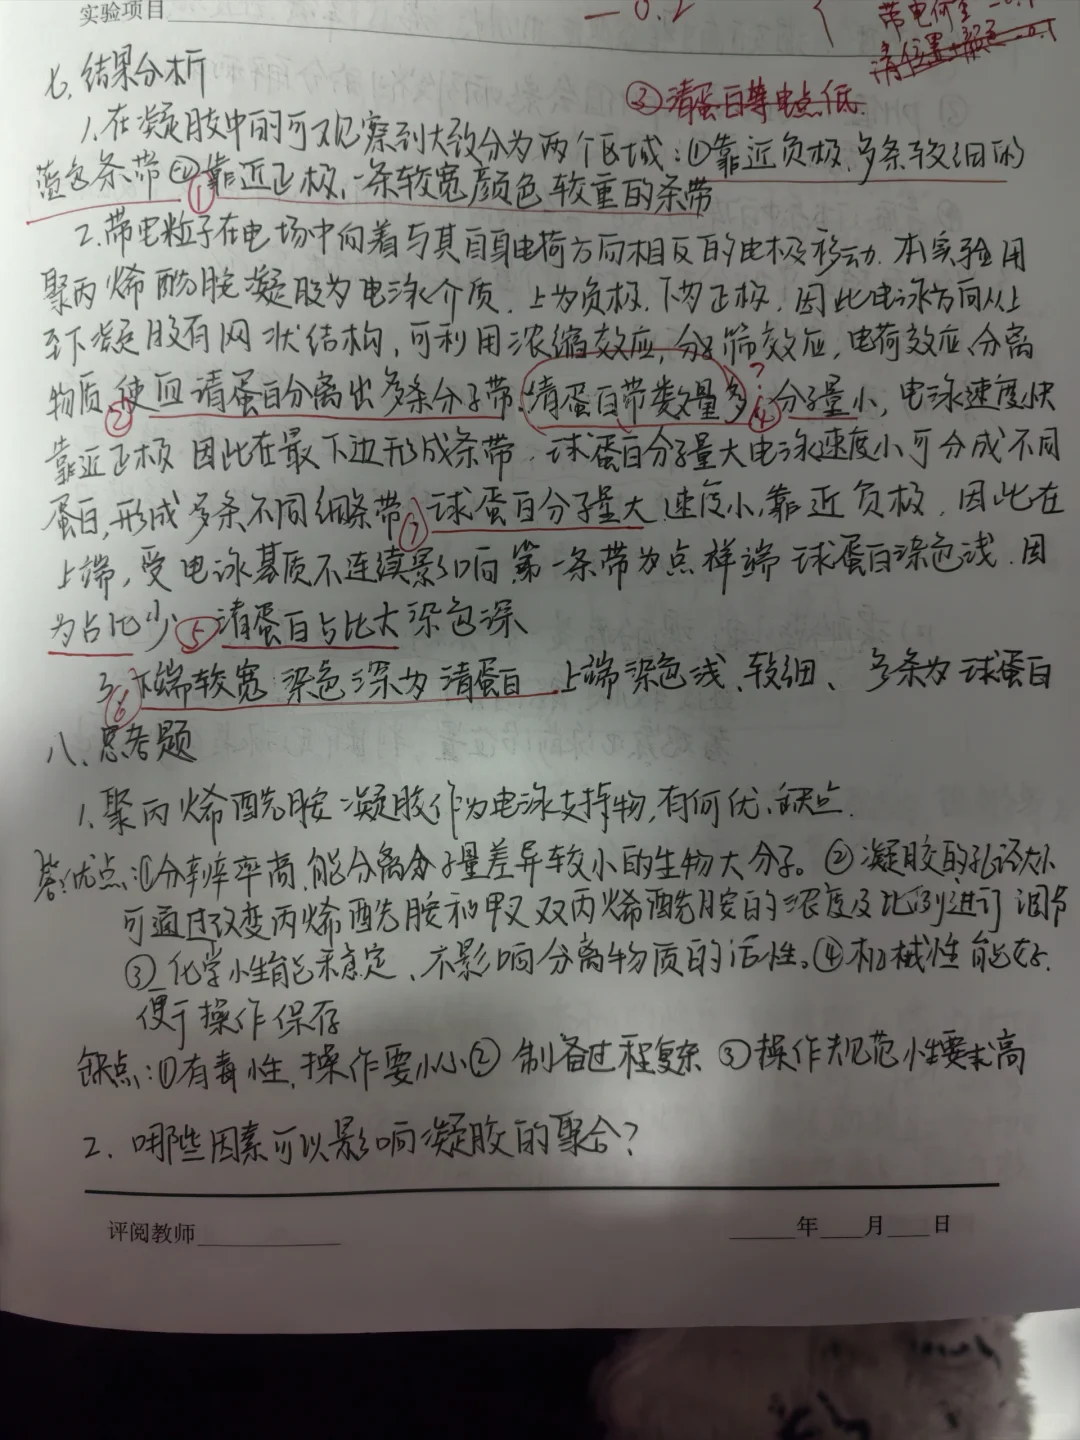 实验项目
-0.2
带电荷 -0.1
请位置+颜色 -0.1
七、结果分析
③清蛋白等电点低
1.在凝胶中的可观察到大致分为两个区域:①靠近负极,多条较细的
蓝色条带②靠近正极,一条较宽颜色较重的条带
①
2.带电粒子在电场中向着与其自身电荷方向相反的电极移动.本实验用
聚丙烯酰胺凝胶为电泳介质.上为负极.下为正极.因此电泳方向从上
至下凝胶有网状结构,可利用浓缩效应,分子筛效应,电荷效应、分离
物质,使血清蛋白分离出多条分子带.清蛋白带数量多,分子量小,电泳速度快
② ? ④
靠近正极 因此在最下边形成条带.球蛋白分子量大电泳速度小可分成不同
蛋白,形成多条不同细条带,球蛋白分子量大 速度小,靠近负极.因此在
⑦
上端,受电泳基质不连续影响 第一条带为点样端 球蛋白染色浅.因
为占比少 清蛋白占比大 染色深
⑤
3.下端较宽 染色深为清蛋白 上端染色浅、较细、多条为球蛋白
⑥
八、思考题
1.聚丙烯酰胺凝胶作为电泳支持物,有何优、缺点.
答:优点:①分辨率高,能分离分子量差异较小的生物大分子。②凝胶的孔径大小
可通过改变丙烯酰胺和甲叉双丙烯酰胺的浓度及比例进行调节
③化学性能稳定、不影响分离物质的活性。④机械性能好.
便于操作保存
缺点:①有毒性,操作要小心② 制备过程复杂 ③操作规范性要求高
2.哪些因素可以影响凝胶的聚合?
评阅教师
年 月 日